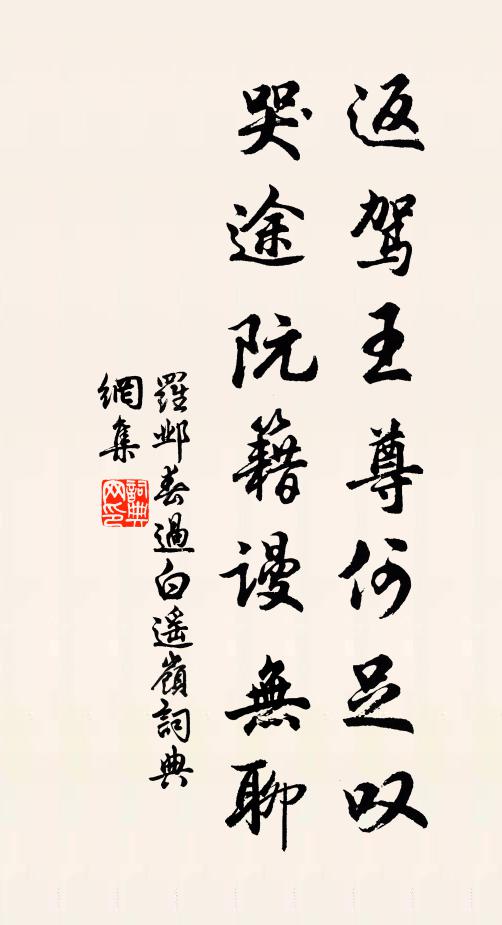 返駕王尊何足叹
哭途阮籍謾無聊
羅鄴春過白遥嶺詞典
網集
詞典
网印